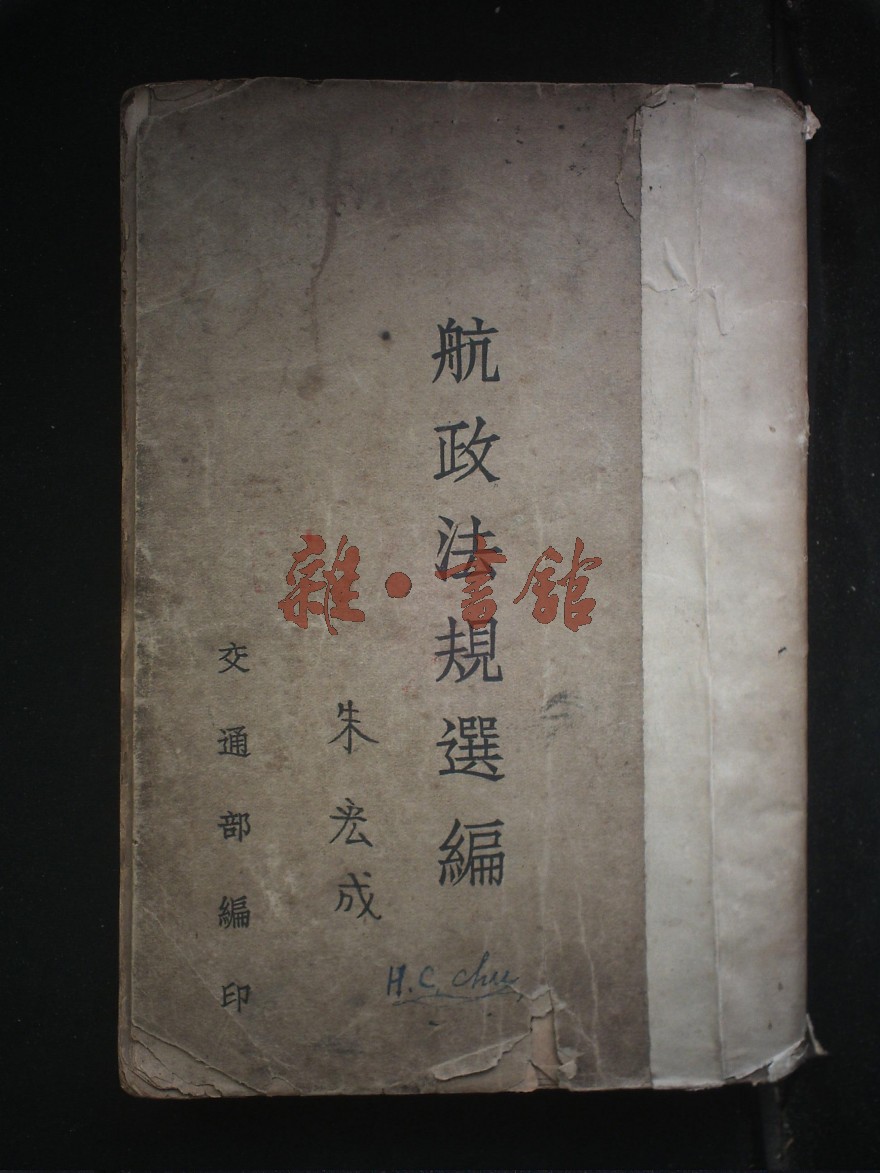 航政法規選編
朱宏成
交通部編印
H. C. Chu
雜·書館